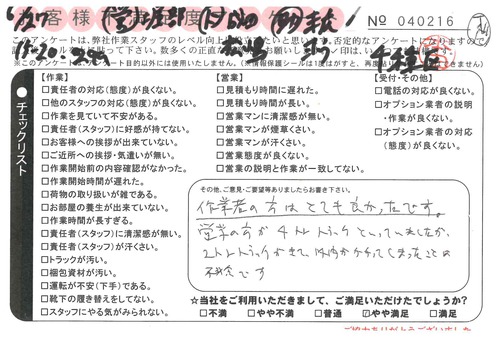 No 040216
このアンケートは、弊社作業スタッフのレベル向上
※このアンケート目的以外には使用いたしません。
チェックリスト
【作業】
□責任者の対応(態度)が良くない。
□他のスタッフの対応(態度)が良くない。
□作業を見ていて不安がある。
□責任者(スタッフ)に好感が持てない。
□お客様への挨拶が出来ていない。
□ご近所への挨拶・気遣いが無い。
□作業開始前の内容確認がなかった。
□作業開始時間が遅れた。
□荷物の取り扱いが雑である。
□お部屋の養生が出来ていない。
□作業時間が長すぎる。
□責任者(スタッフ)に清潔感が無い。
□責任者(スタッフ)が汗くさい。
□トラックが汚い。
□梱包資材が汚い。
□運転が不安(下手)である。
□靴下の履き替えをしてない。
□スタッフにやる気がみられない。
【営業】
□見積もり時間に遅れた。
□見積もり時間が長い。
□営業マンに清潔感が無い。
□営業マンが煙草くさい。
□営業マンが汗くさい。
□営業態度が良くない。
□営業の説明と作業が一致してない。
【受付・その他】
□電話の対応が良くない。
□オプション業者の説明
・作業が良くない。
□オプション業者の対応
(態度)が良くない。
その他、ご意見・ご要望等ありましたらお書き下さい。
作業者の方はとても良かったです。
営業の方が4tトラックといっていましたが、
2tトラックがきて、
☆当社をご利用いただきまして、ご満足いただけたでしょうか?
□不満 □やや不満 □普通 ☑やや満足 □満足
ご協力ありがとうございました